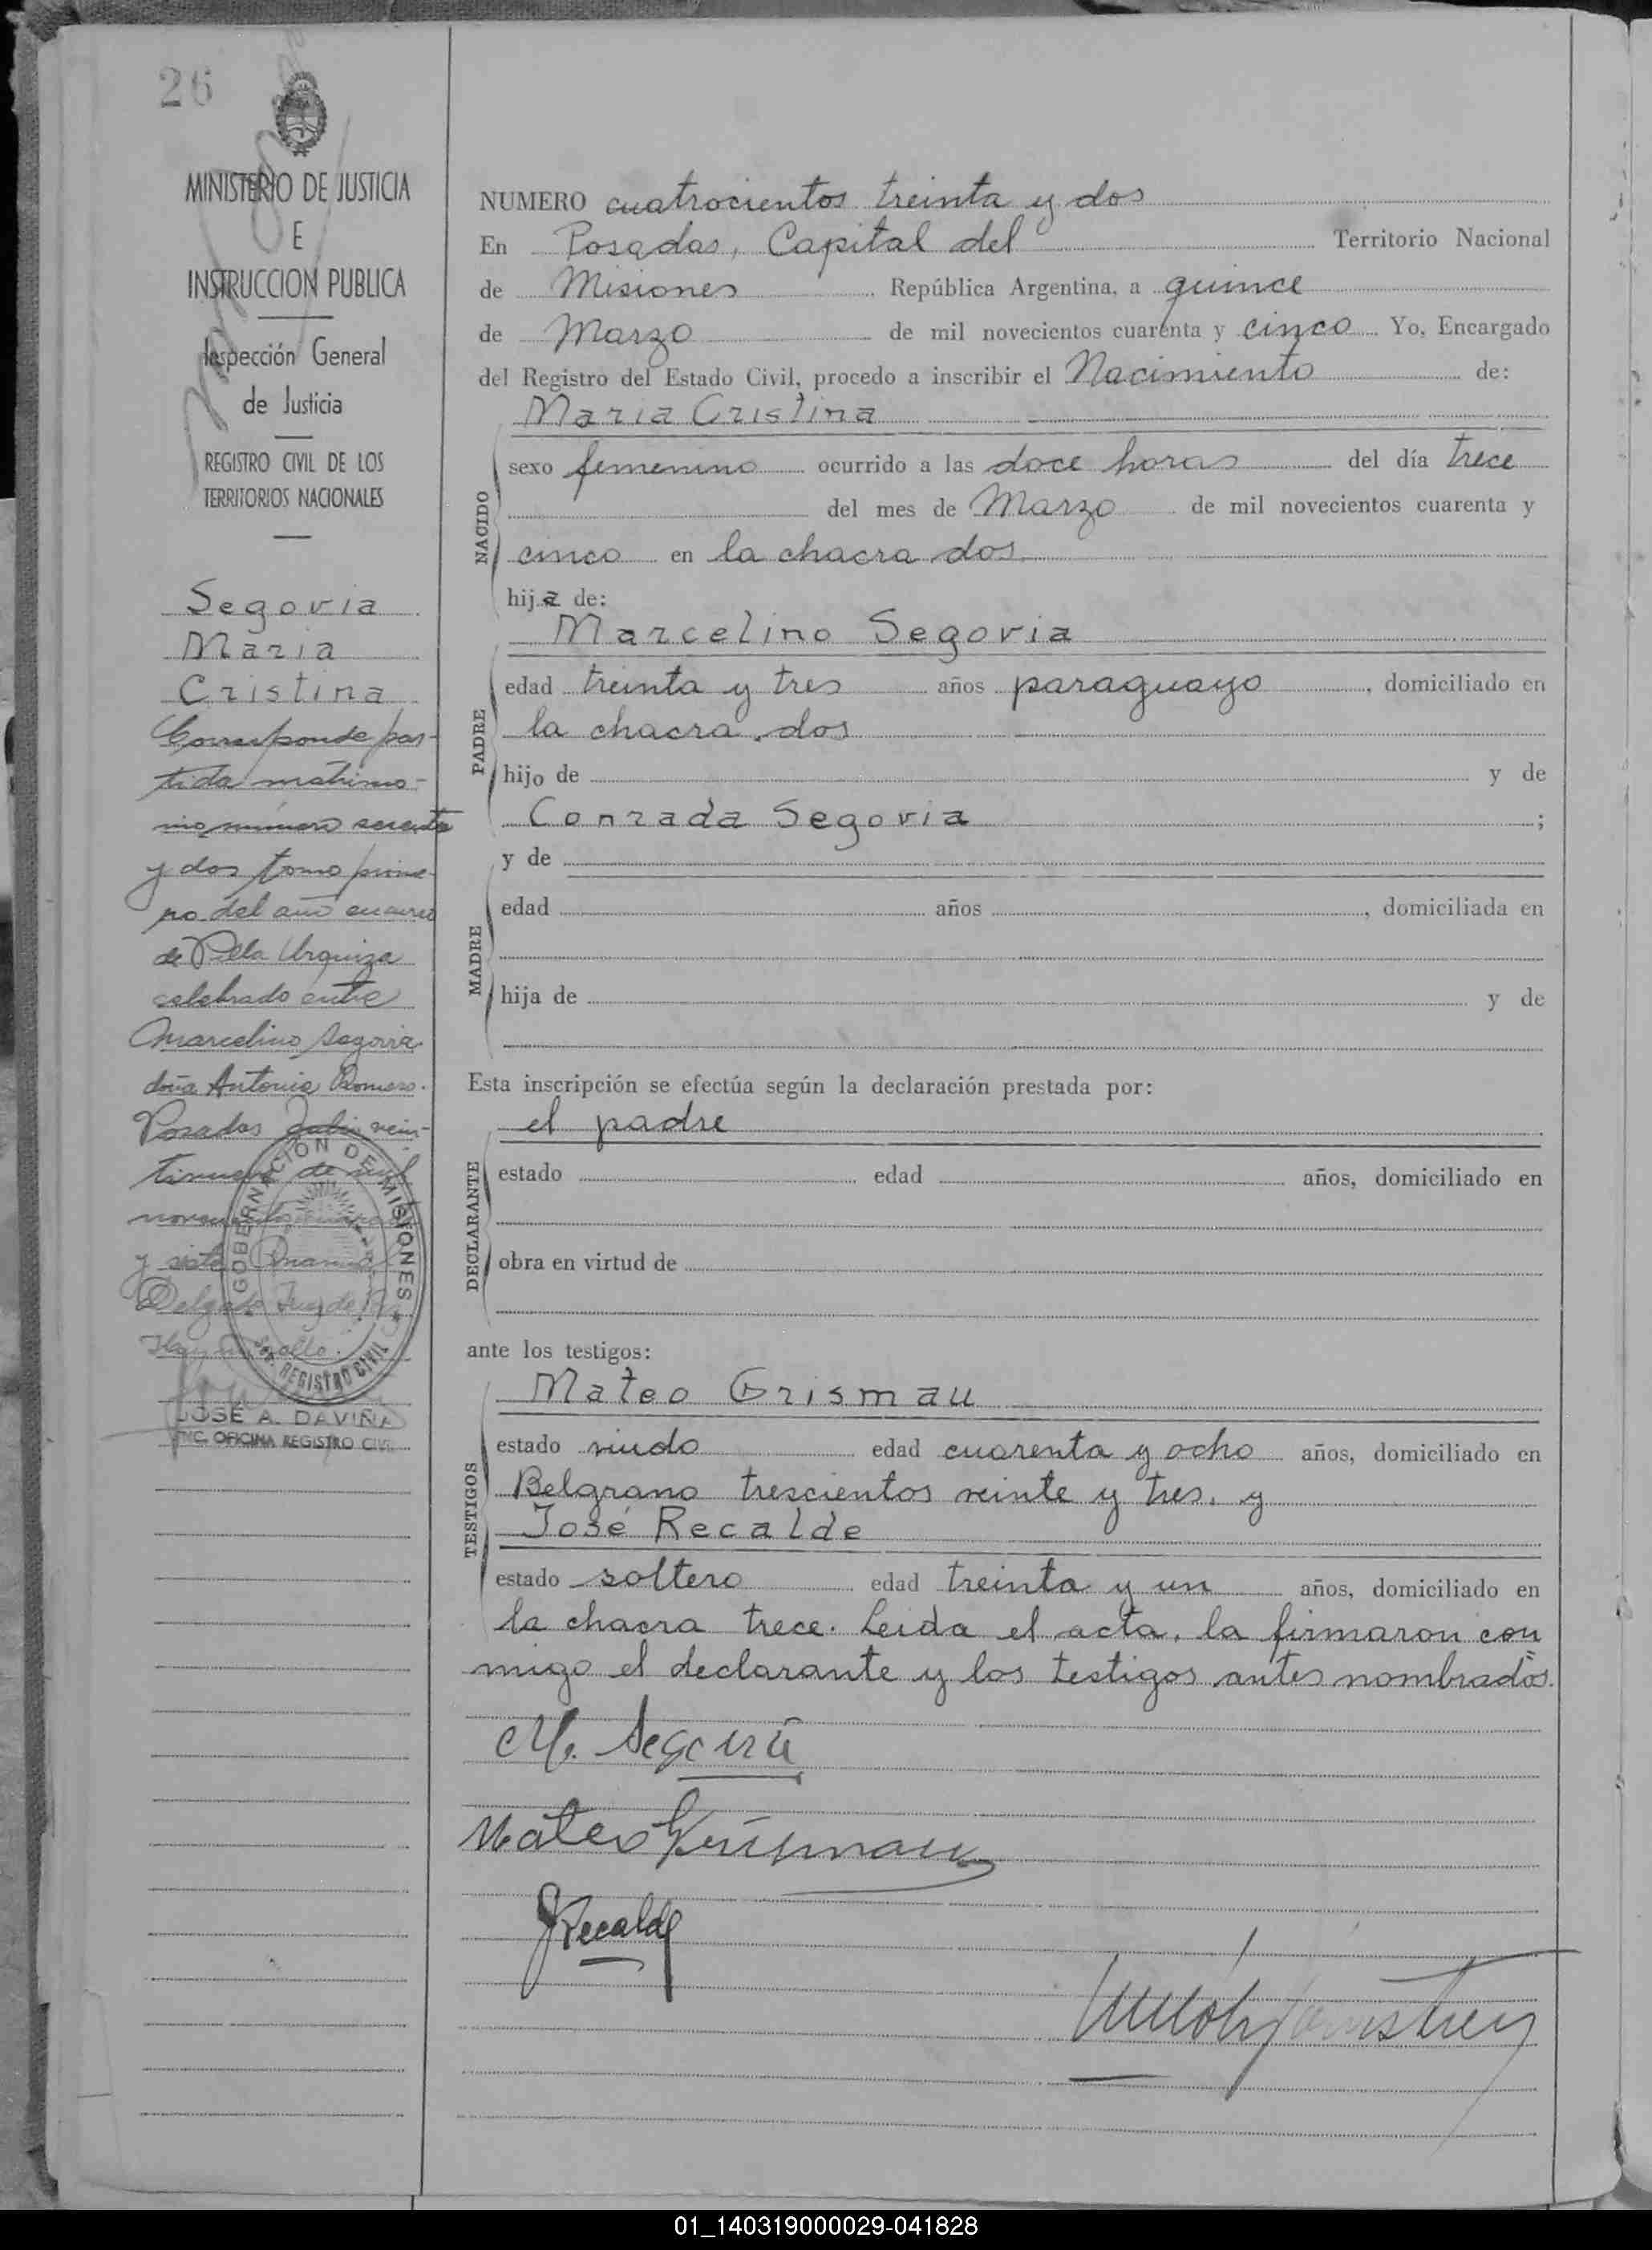 26
MINISTERIO DE JUSTICIA
E
INSTRUCCION PUBLICA
Inspección General
de Justicia
REGISTRO CIVIL DE LOS
TERRITORIOS NACIONALES
Segovia
Maria
Cristina
Corresponde par-
tida matrimo-
nio número
y dos tomo prime-
ro del año
de Villa Urquiza
celebrado entre
Marcelino Segovia
doña Antonia Romero.
Posadas Julio vein-
tinueve de mil
novecientos
y siete
Delgado Juez de Paz
Hay un sello.
GOBERNACION DE MISIONES
REGISTRO CIVIL
JOSÉ A. DAVIÑA
ENC. OFICINA REGISTRO CIVIL
NUMERO cuatrocientos treinta y dos
En Posadas, Capital del Territorio Nacional
de Misiones República Argentina, a quince
de Marzo de mil novecientos cuarenta y cinco Yo, Encargado
del Registro del Estado Civil, procedo a inscribir el Nacimiento de:
Maria Cristina
NACIDO
sexo femenino ocurrido a las doce horas del día trece
del mes de Marzo de mil novecientos cuarenta y
cinco en la chacra dos
hija de:
Marcelino Segovia
PADRE
edad treinta y tres años paraguayo, domiciliado en
la chacra dos
hijo de y de
Conrada Segovia ;
y de
MADRE
edad años , domiciliada en
hija de y de
Esta inscripción se efectúa según la declaración prestada por:
el padre
DECLARANTE
estado edad años, domiciliado en
obra en virtud de
ante los testigos:
Mateo Grismau
TESTIGOS
estado viudo edad cuarenta y ocho años, domiciliado en
Belgrano trescientos veinte y tres, y
José Recalde
estado soltero edad treinta y un años, domiciliado en
la chacra trece. Leida el acta, la firmaron con
migo el declarante y los testigos antes nombrados.
M. Segovia
Mateo Grismau
J Recalde
01_140319000029-041828